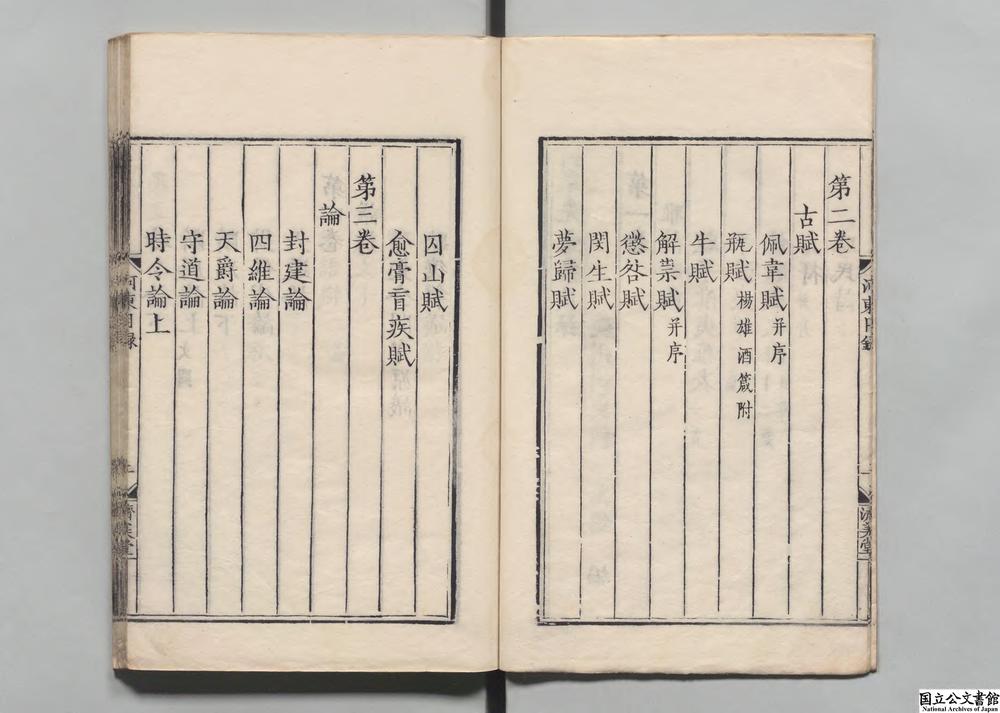 第二卷
古賦
佩韋賦 并序
瓶賦 楊雄酒箴附
牛賦
解祟賦 并序
懲咎賦
閔生賦
夢歸賦
囚山賦
愈膏肓疾賦
第三卷
論
封建論
四維論
天爵論
守道論
時令論上
河東目錄
濟美堂
国立公文書館
National Archives of Japan